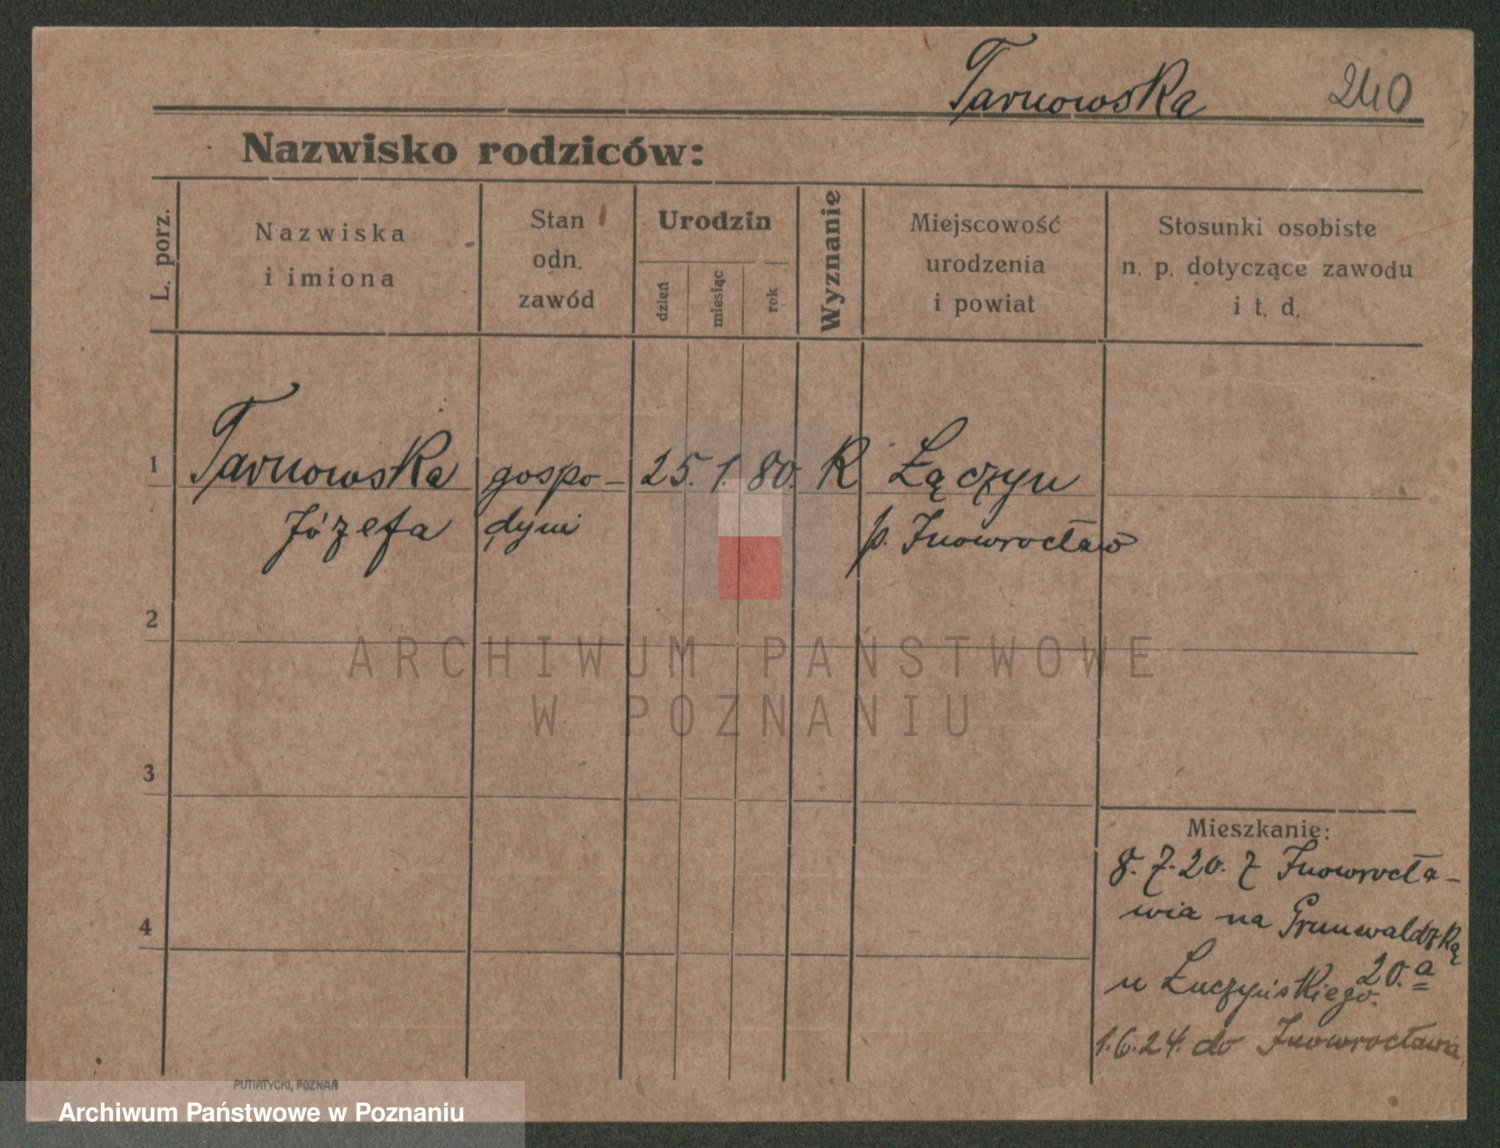 Tarnowska 240
Nazwisko rodziców:
L. porz.
Nazwiska
i imiona
Stan
odn.
zawód
Urodzin
dzień
miesiąc
rok
Wyznanie
Miejscowość
urodzenia
i powiat
Stosunki osobiste
n. p. dotyczące zawodu
i t. d.
1 Tarnowska gospo- 25. 1. 80. R Łączyn
Józefa dyni p. Inowrocław
2
ARCHIWUM PAŃSTWOWE
W POZNANIU
3
Mieszkanie:
8. 7. 20. z Inowrocła-
wia na Grunwaldzką
20.a
u Łuczyńskiego.
1.6.24. do Inowrocławia
4
PUTIATYCKI, POZNAŃ
Archiwum Państwowe w Poznaniu